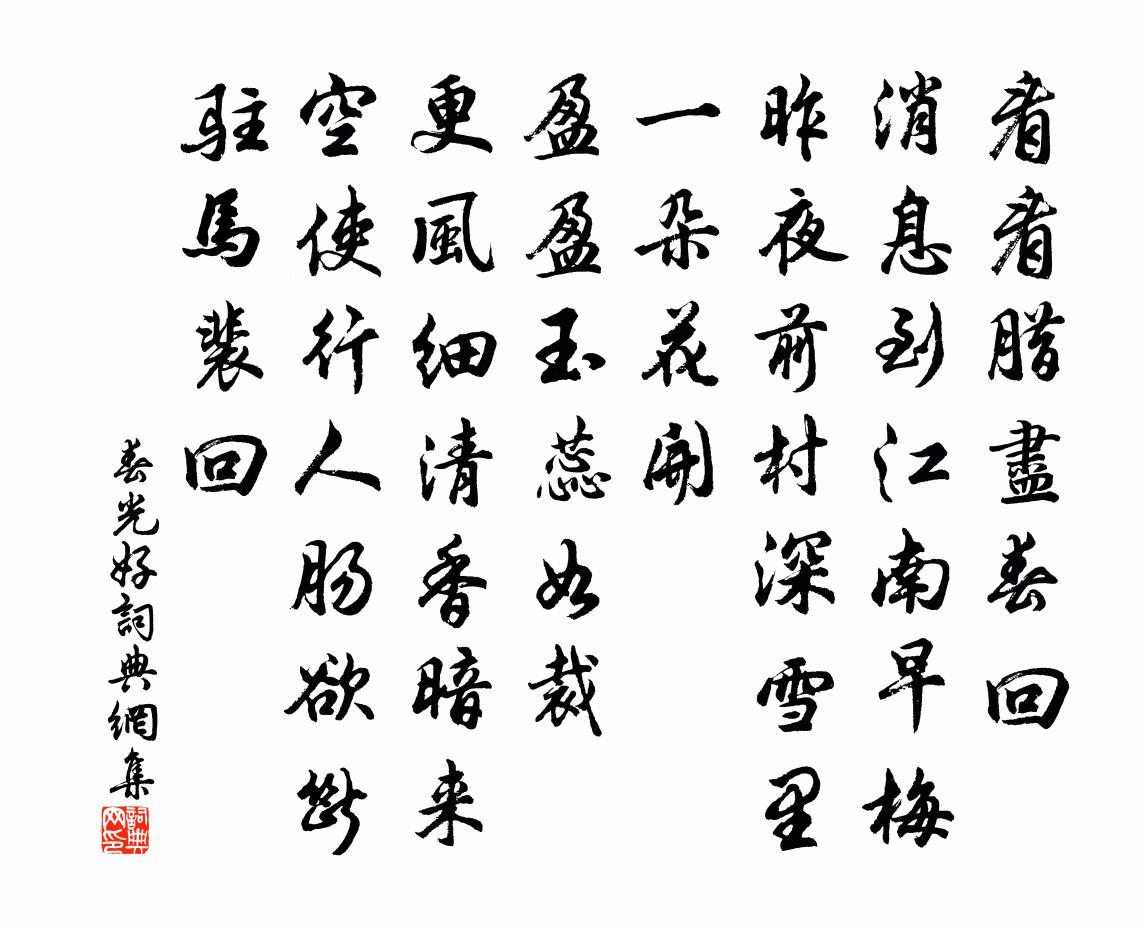 看看腊盡春回
消息到江南早梅
昨夜前村深雪里
一朵花開
盈盈玉蕊如裁
更風細清香暗来
空使行人肠欲斷
駐馬裴回
春光好詞典網集
詞典网印